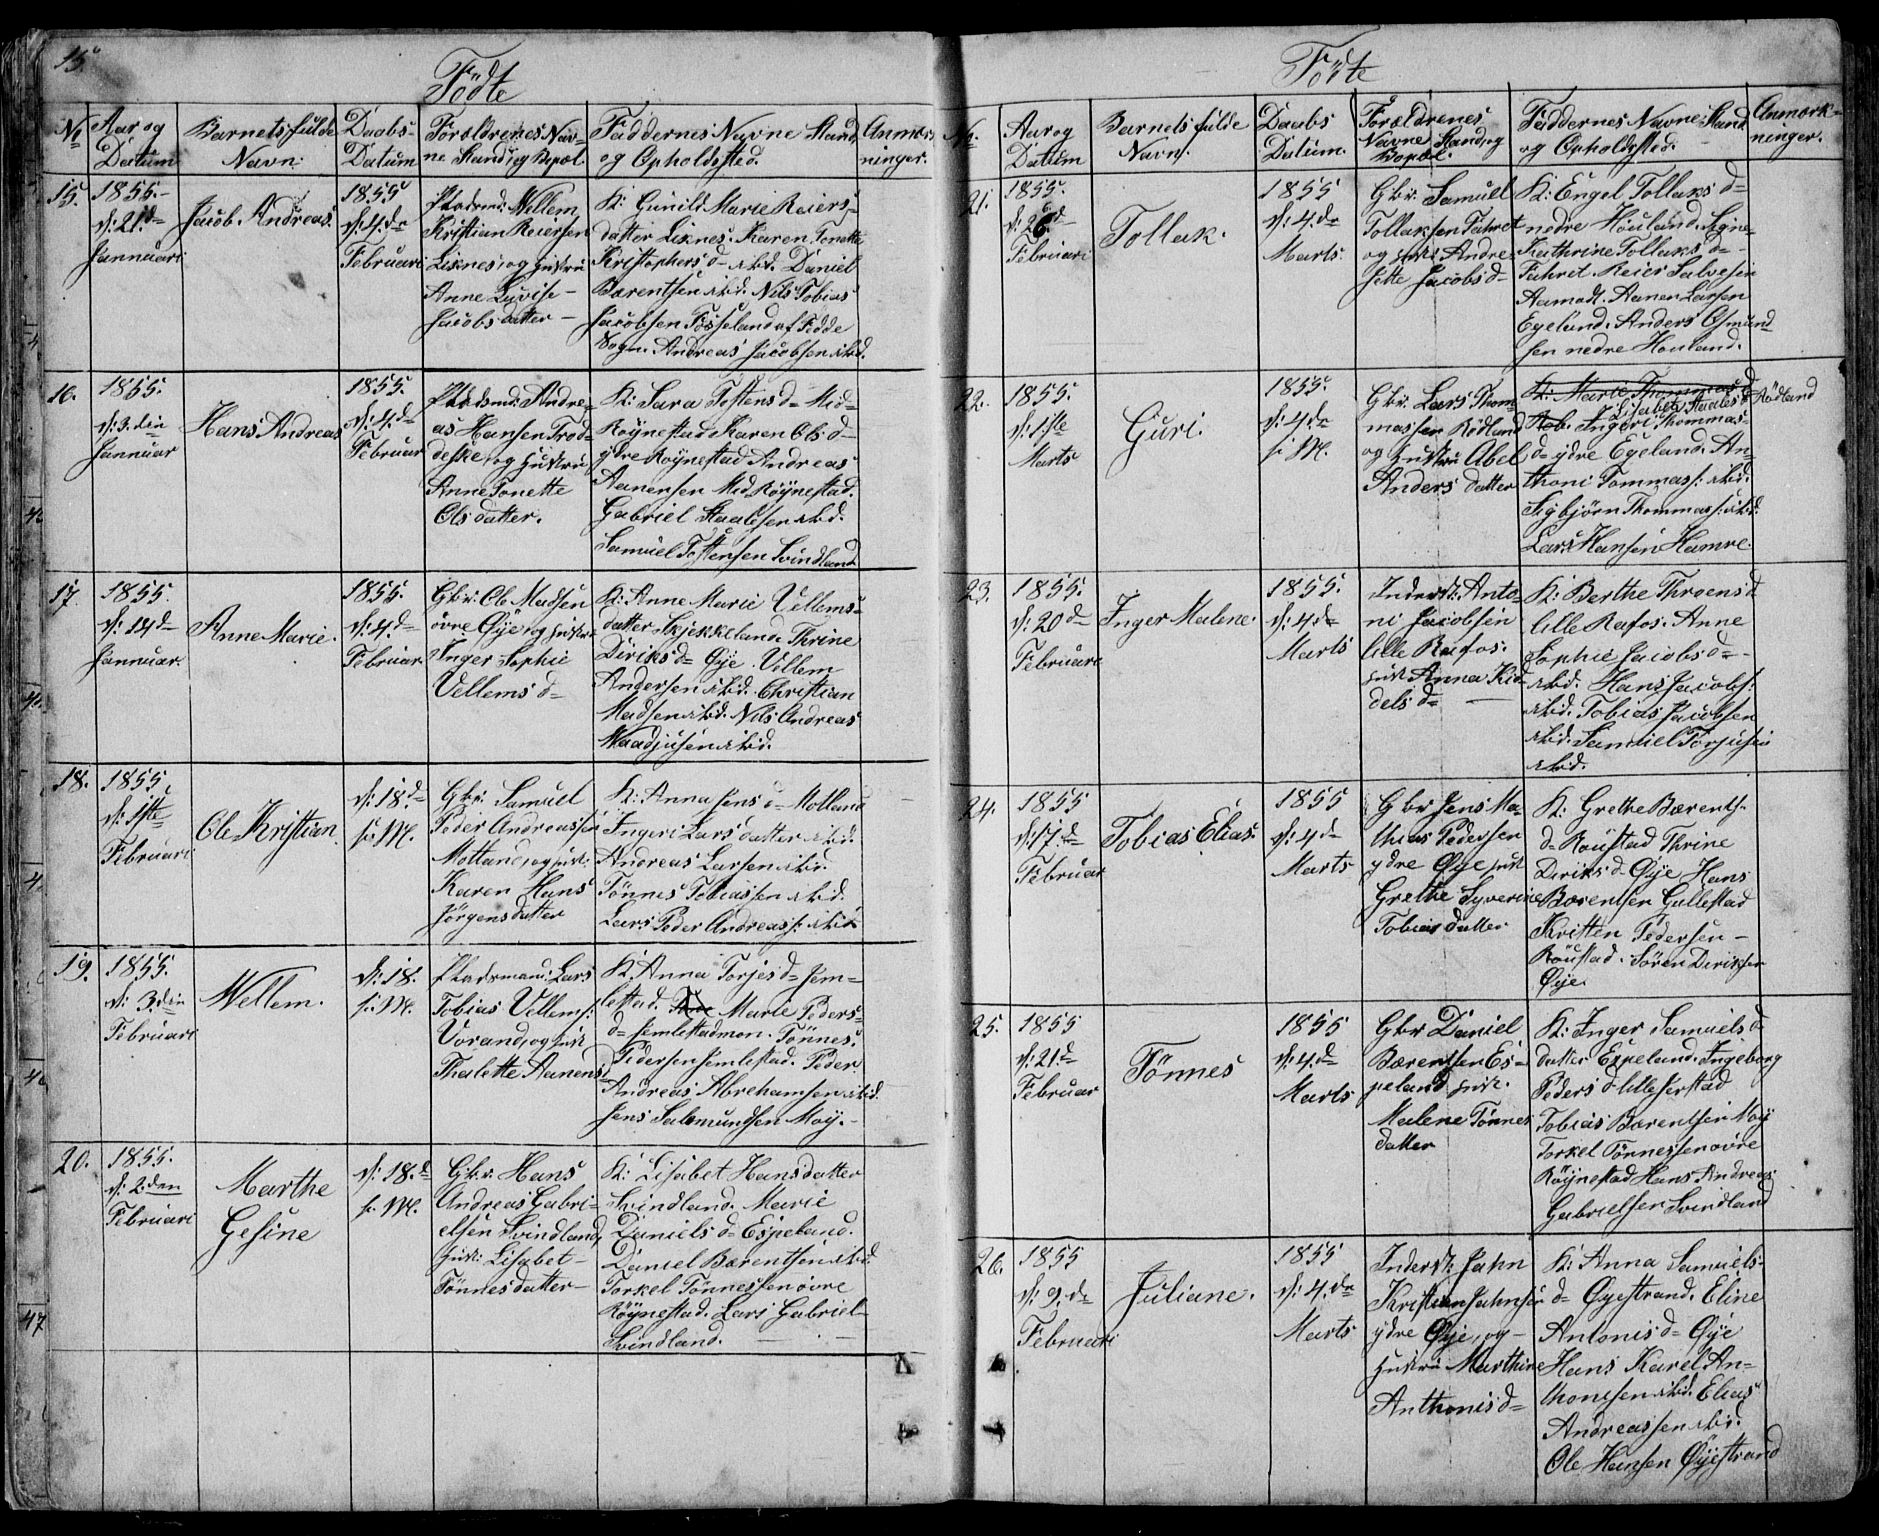 15.
Födte
No
Aar og
Datum
Barnets fulde
Navn.
Daabs-
Datum
Forældrenes Nav-
ne Stand, og Bopæl.
Faddernes Navne Stand
og Opholdssted.
Anmærk-
ninger.
15.
1855.
d: 21d=
Januari
Jacob Andreas.
1855
d: 4.de
Februari
Pladsmd: Vellem
Kristian Reiersen
Lisnes, og hustru
Anne Luvise
Jacobsdatter
K: Gunild Marie Reiers-
datter Lisnes. Karen Tonette
Kristophersd= ibid. Daniel
Bærentsen ibid. Nils Tobias
Jacobsen Fösseland af Fedde
Sogn. Andreas Jacobsen ibid.
16.
1855.
d: 3.den
Januar
Hans Andreas
1855.
d: 4.d=
Februar
Pladsmd: Andre-
as Hansen Trod-
deske, og hustru
Anne Tonette
Olsdatter.
K: Sara Tostensd= Mid-
Röynestad Karen Olsd=
ydre Röynestad Andreas
Aanensen Mid Röynestad.
Gabriel Staalesen ibid.
Samuel Tostensen Svindland
17.
1855.
d: 14d=
Januar
Anne Marie.
1855.
d: 4.d=
Februar.
Gbr: Ole Madsen
övre Øye, og hustru
Inger Sophie
Vellemsd=
K: Anne Marie Vellems-
datter Skjekkeland Thrine
Diriksd= Øye. Vellem
Andersen ibid. Christian
Madsen ibid. Nils Andreas
ibid.
18.
1855
d: 1ste
Februari
Ole Kristian.
d: 18.d=
s: M.
Gbr: Samuel
Peder Andreassen
Motland, og hust:
Karen Hans
Jörgensdatter
K: Anna Jensd= Motland
Ingeri Larsdatter ibid.
Andreas Larsen ibid.
Tönnes Tobiassen ibid.
Lars Peder Andreass: ibid
19.
1855.
d: 3den
Februari
Vellem.
d: 18.
s: M.
Pladsmand: Lars
Tobias Vellems:
Vorand, og hust
Thalette Aanensd
K: Anna Torjesd= Jem-
lestad. Marie Peders-
d= Jemlestadmon. Tönnes
Pedersen Jemlestad. Peder
Andreas Abrehamsen ibid.
Jens Salemundsen Moy.
20.
1855.
d: 2.den
Februari
Marthe
Gesine
d: 18.d=
s: M.
Gbr: Hans
Andreas Gabri-
elsen Svindland,
hust: Lisabet
Tönnesdatter
K: Lisabet Hansdatter
Svindland. Marie
Danielsd= Espeland.
Daniel Bærentsen ibid.
Torkel Tönnessen övre
Röynestad. Lars Gabriel-
Svindland.
Födte
No.
Aar og
Datum
Barnets fulde
Navn.
Daabs
Datum.
Forældrenes
Navne Stand, og
Bopæl.
Faddernes Navne Stand
og Opholdssted.
Anmærk-
ninger.
21.
1855.
d: 26d
Februari
Tollak.
1855
d: 4.de
Marts.
Gbr: Samuel
Tollaksen Fuhret
og hust: Andre-
jette Jacobsd=
K: Engel Tollaksd=
nedre Houland. Signe
Kathrine Tollaksd=
Fuhret. Reier Salvesen
Aamodt. Aanen Larsen
Egeland. Anders Osmund-
sen nedre Houland.
22.
1855.
d: 1ste
Marts
Guri.
1855.
d: 4.de
s: M.
Gbr. Lars Thom-
massen Rödland
og hustru Abel
Andersdatter
K: Marie Thommasd
Lisabet Staalesd= Rödland
Rob. Ingeri Thommas-
d= ydre Egeland. An-
thoni Tommass: ibid.
Sigbjörn Thommass: ibid.
Lars Hansen Hamre.
23.
1855.
d: 20d=
Februari
Inger Malene.
1855.
d: 4de
Marts
Inderst: Anto-
ni Jacobsen
lille Rafos.
hust Anna Kid-
delsd=
K: Berthe Throensd
lille Rafos. Anne
Sophie Jacobsd=
ibid. Hans Jacobs:
ibid. Tobias Jacobsen
ibid. Samuel Torjusen
ibid.
24.
1855
d: 17.d=
Februar
Tobias Elias.
1855
d: 4d=
Marts
Gbr Jens Ma-
thias Pedersen
ydre Øye hust
Grethe Syverine
Tobiasdatter
K: Grethe Bærents-
d= Röustad Thrine
Diriksd= Øye Hans
Bærentsen Gullestad
Kristen Pedersen
Röustad. Sören Diriksen
Øye.
25.
1855
d: 21d=
Februar
Tönnes
1855
d: 4.d=
Marts
Gbr Daniel
Bærentsen Es-
peland hust.
Malene Tönnes
datter
K: Inger Samuelsd
datter Espeland. Ingeborg
Pedersd lille
Tobias Bærentsen Moy
Torkel Tönnessen övre
Röynestad Hans Andreas
Gabrielsen Svindland
26.
1855
d: 9.d=
Februari
Juliane.
1855
d: 4.de
Marts
Inderst Jahn
Kristian Jahnsen
ydre Øye, og
hustru Marthine
Anthonisd=
K: Anna Samuels-
d= Øyestrand. Eline
Antonisd= Øye
Hans Karel An-
thonsen ibid. Elias
Andreassen ibid.
Ole Hansen Øyestrand